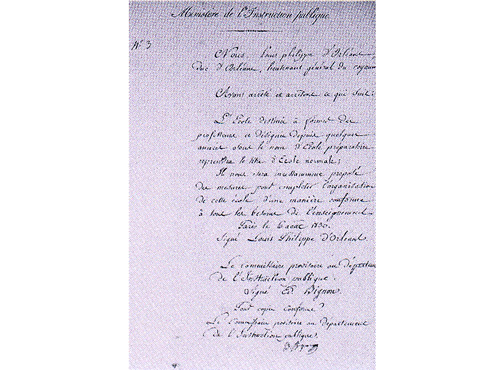 Ministère de l'Instruction publique
N° 3
Nous, Louis philippe d'Orléans
Duc d'Orléans, lieutenant général du royaume
Avons arrêté et arrêtons ce qui suit:
L'Ecole destinée à former des
professeurs et désignée depuis quelques
années sous le nom d'Ecole préparatoire
reprendra le titre d'Ecole normale;
Il nous sera incessamment proposé
des mesures pour compléter l'organisation
de cette école d'une manière conforme
à tous les besoins de l'enseignement
Paris le 6 août 1830.
Signé Louis Philippe d'Orléans.
Le commissaire provisoire au département
de l'Instruction publique.
Signé Bignon
Pour copie conforme
Le Commissaire provisoire au département
de l'Instruction publique.